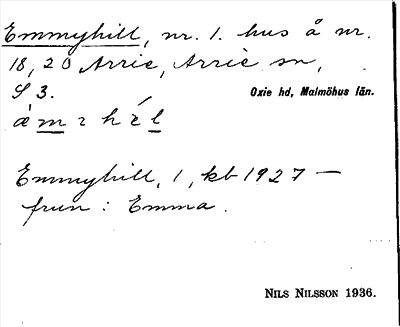 Emmyhill, nr. 1. hus å nr.
18, 20 Arrie, Arrie sn,
S 3. Oxie hd, Malmöhus län.
Emmyhill, 1, kb 1927 —
frun : Emma.
NILS NILSSON 1936.